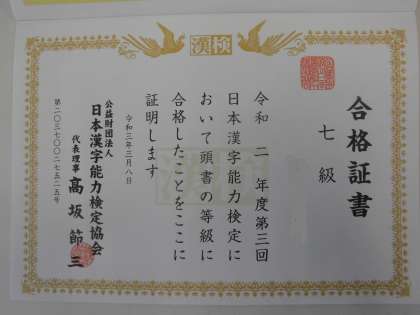 漢検
合格証書
七級
令和二年度第三回
日本漢字能力検定に
おいて頭書の等級に
合格したことをここに
証明します
令和三年三月八日
公益財団法人
日本漢字能力検定協会
代表理事 高坂節三
第二〇三七〇〇二七五二五号